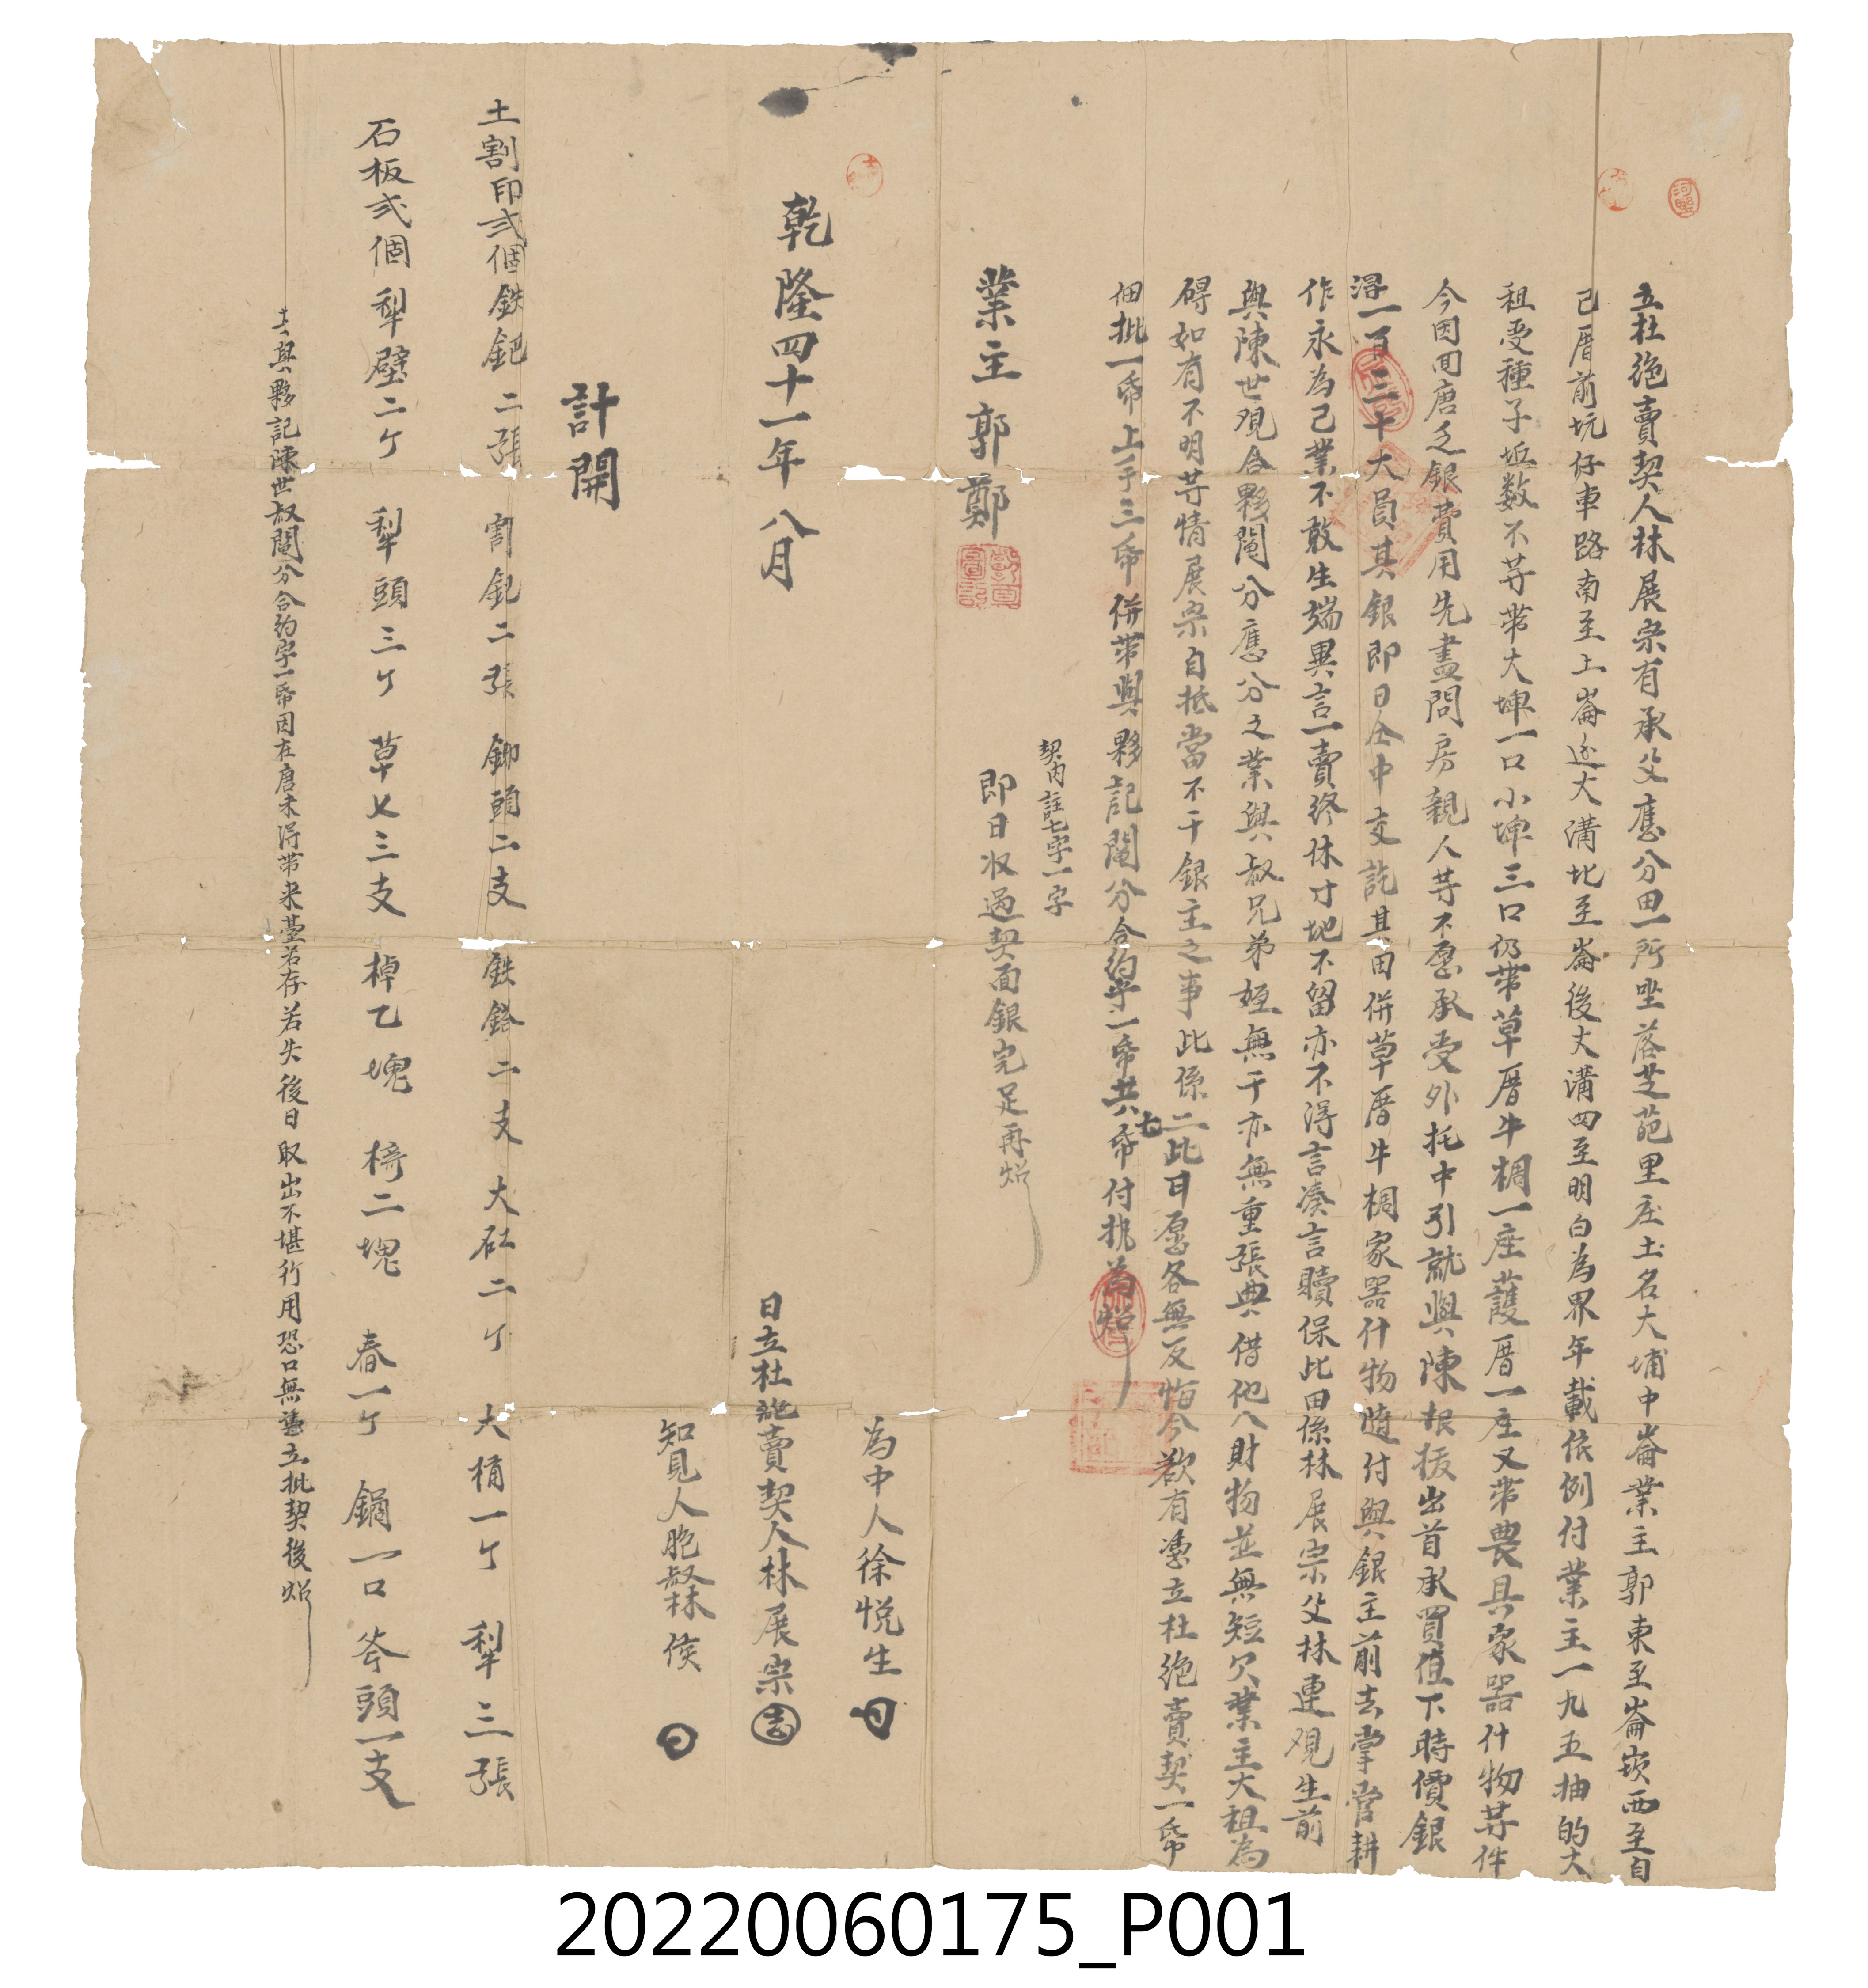 立杜絶賣契人林展宗有承父應分田一所坐落芝葩里庄土名大埔中崙業主郭東至崙崁西至自
己厝前坑仔車路南至上崙逐大溝北至崙後大溝四至明白為界年載依例付業主一九五抽的大
租受種子坵数不等带大埤一口小埤三口仍带草厝牛椆一座護厝一座又带農具家器什物等件
今因回唐乏銀費用先盡問房親人等不愿承受外托中引就與陳根振出首承買值下時價銀
得一百三十大員其銀即日仝中交訖其田併草厝牛椆家器什物隨付與銀主前去掌管耕
作永為己業不敢生端異言一賣終休寸地不留亦不得言湊言贖保此田係林展宗父林連观生前
與陳世观合夥鬮分應分之業與叔兄弟姪無干亦無重張典借他人財物並無短欠業主大租為
碍如有不明等情展宗自抵當不干銀主之事此係二比甘愿各無反悔今欲有憑立杜絶賣契一帋
佃批一帋上手三帋併带與夥記鬮分合約字一帋共七帋付执為炤
契内註七字一字
即日收過契面銀完足再炤
業主郭鄭
為中人徐悦生
乾隆四十一年八月
日立杜絶賣契人林展宗
知見人胞叔林侯
計開
土割印弍個 鉄鈀二張 割鈀二張 鋤頭二支 鉄鎝二支 大缸二个 大桶一个 犁三張
石板弍個 犁壁二个 犁頭三个 草乂三支 棹乙塊 椅二塊 舂一个 鍋一口 斧頭一支
其與夥記陳世叔鬮分合約字一帋因在唐未得带来臺若存若失後日取出不堪行用恐口無憑立批契後炤
20220060175_P001